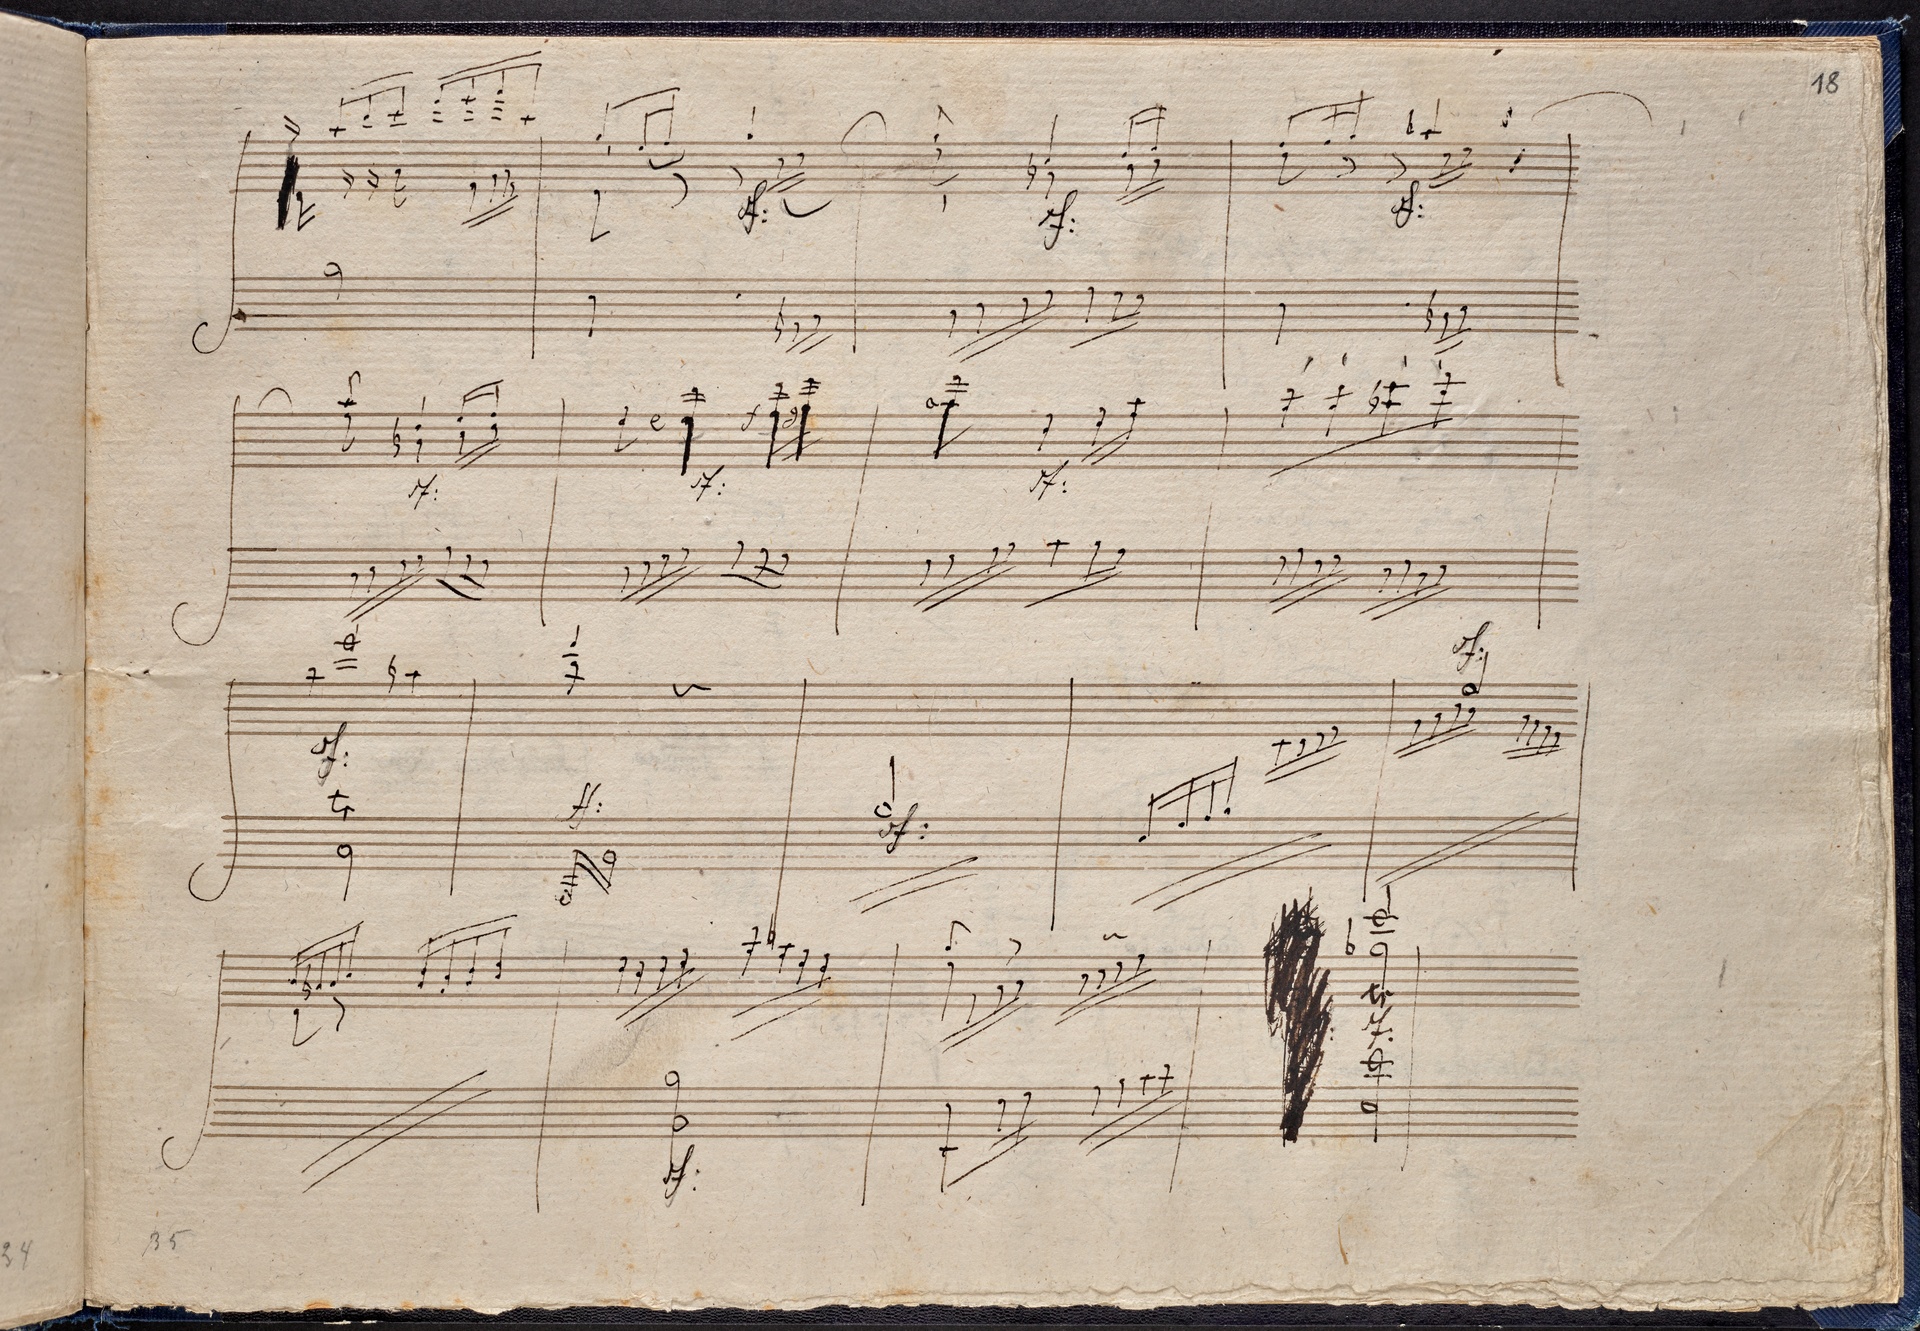 18
sf: sf: sf:
sf: e sf: f g a sf:
sf:
sf:
tr ff: sf:
tr
sf:
sf:
34 35